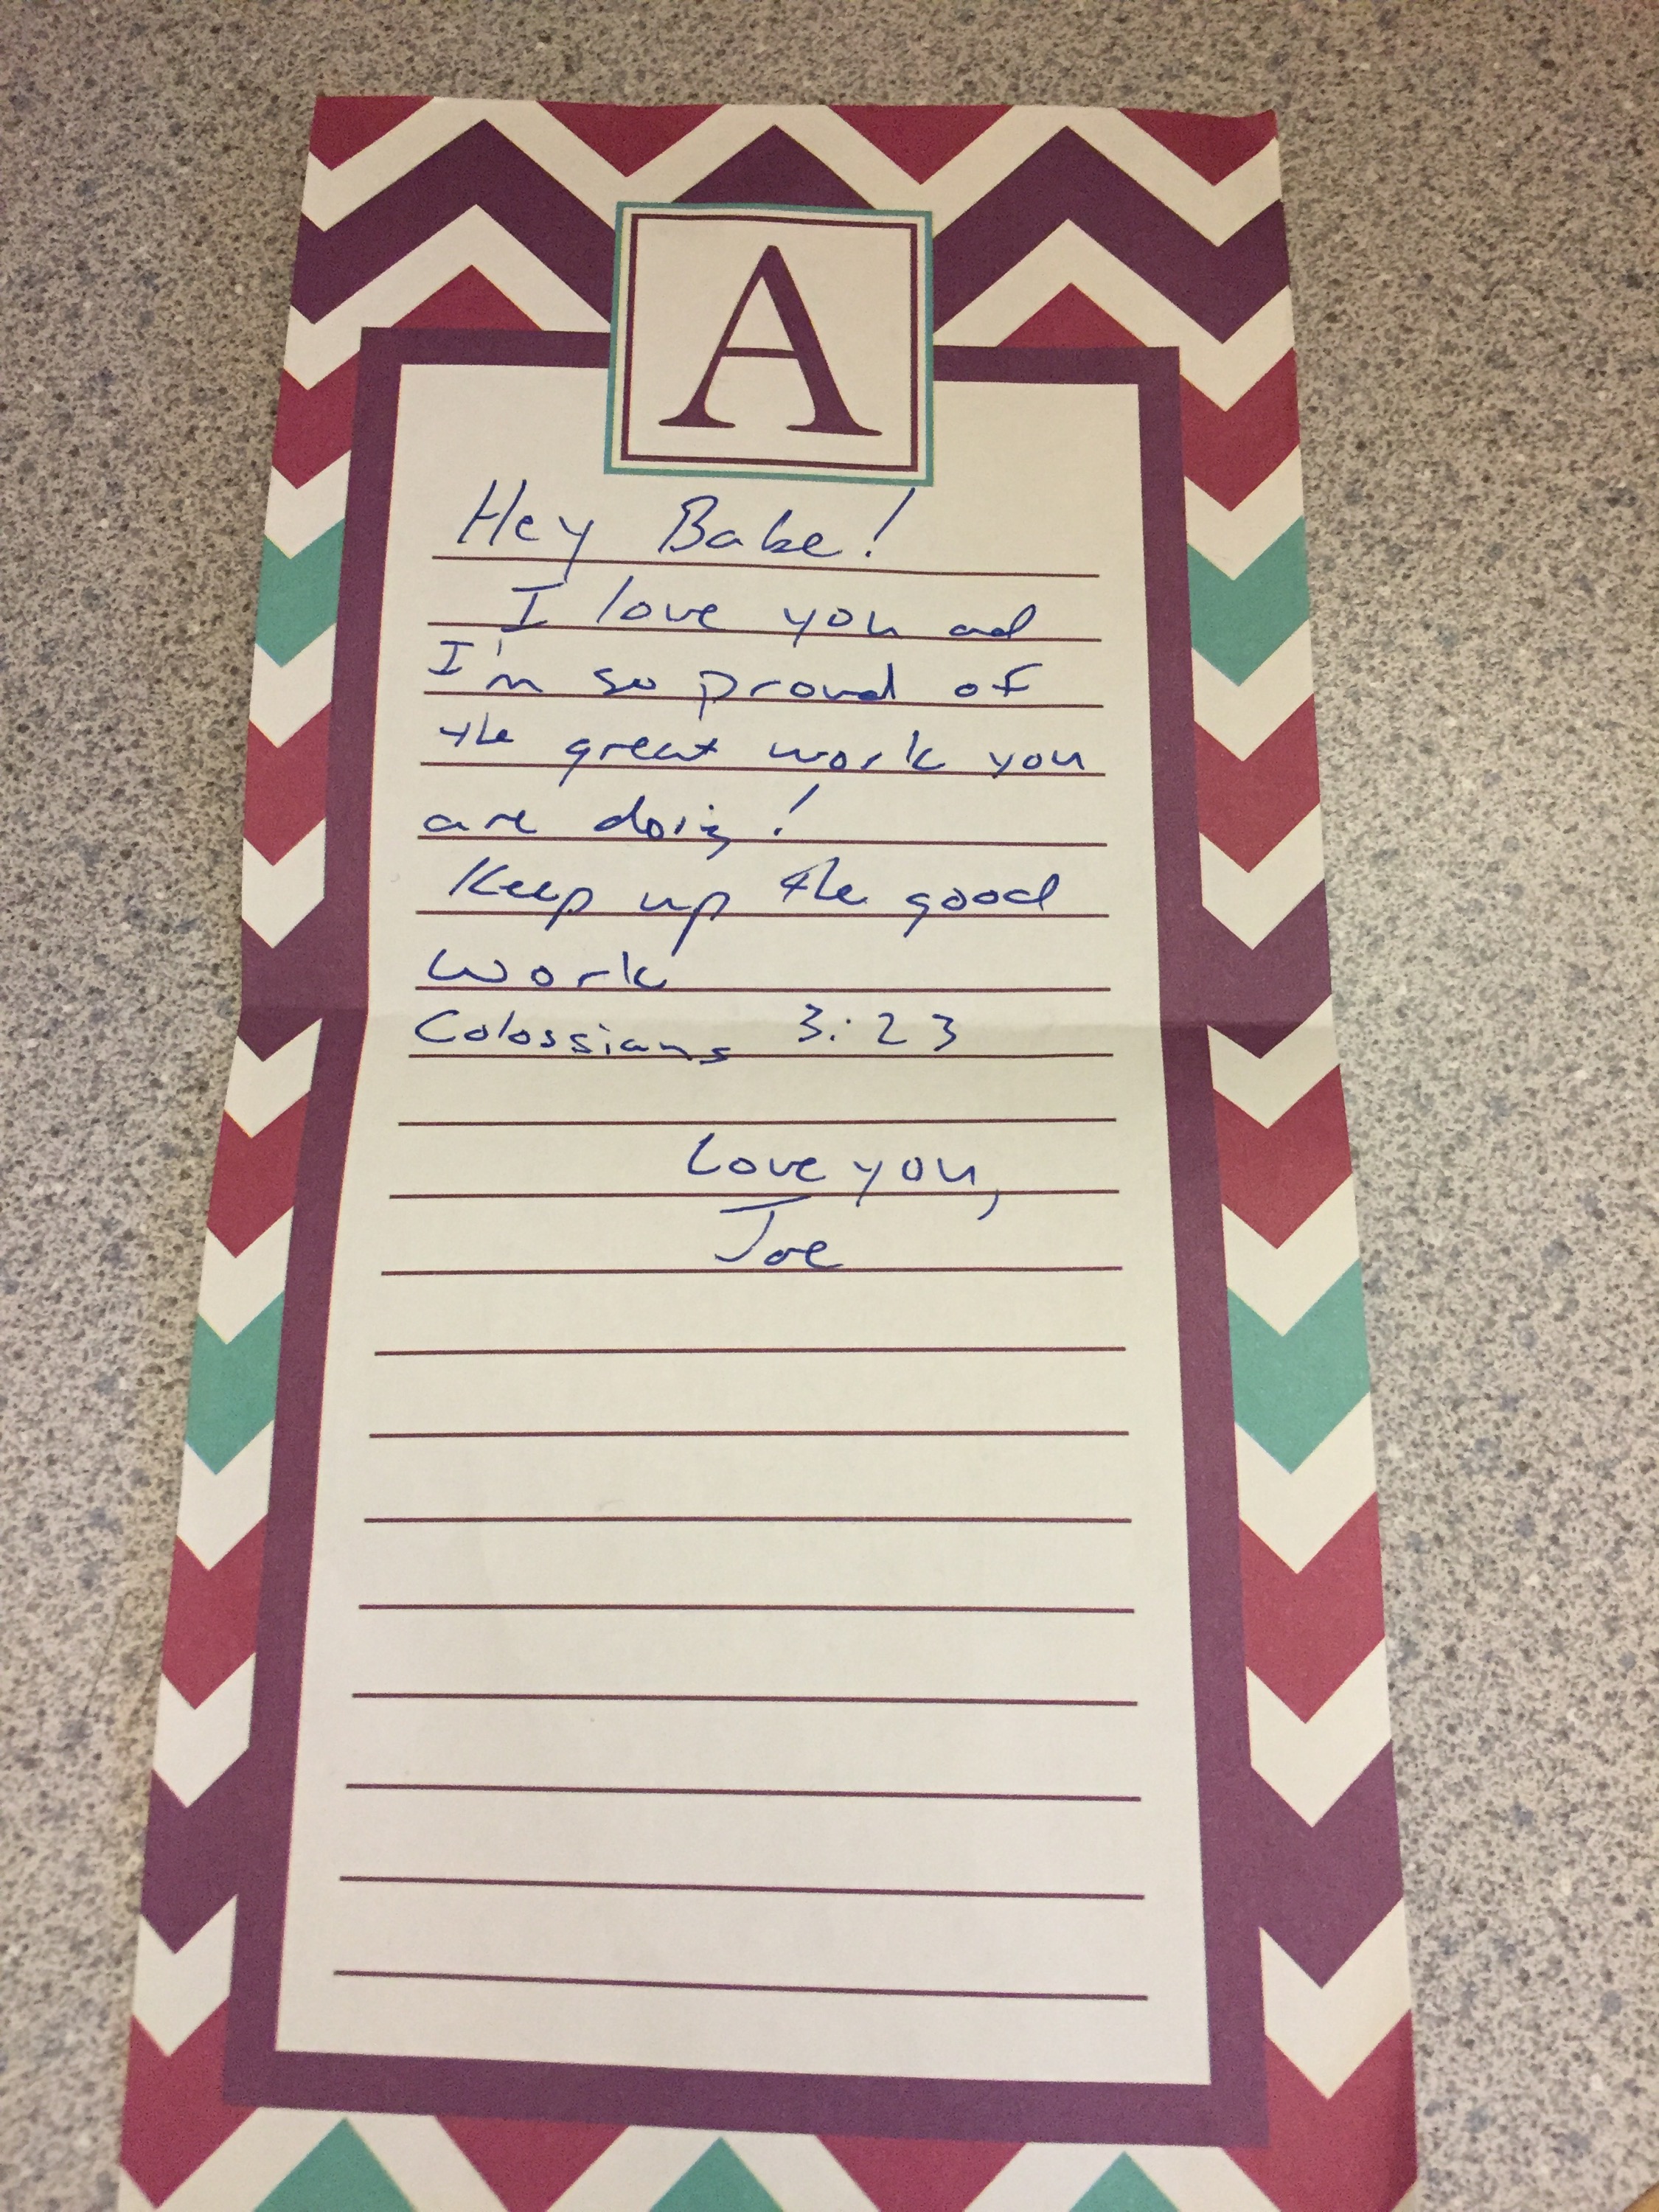 A
Hey Babe!
I love you ad
I'm so proud of
the great work you
are doing!
Keep up the good
work
Colossians 3:23
Love you,
Joe